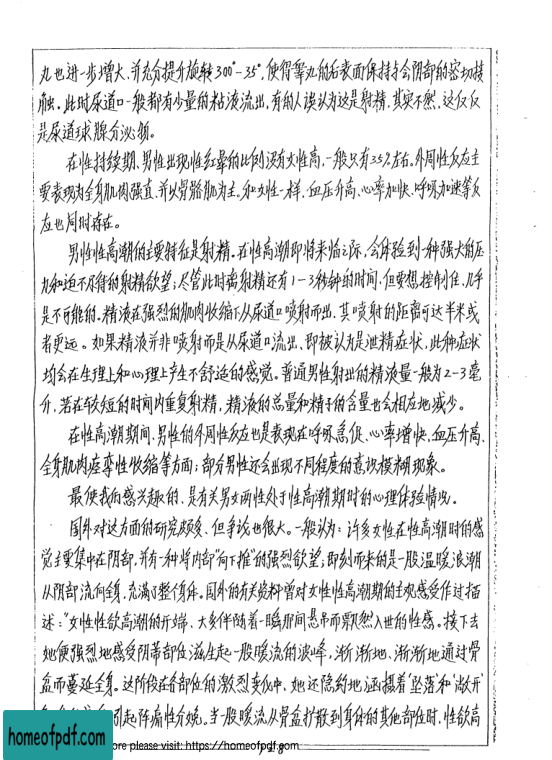 丸也进一步增大、并充分提升旋转30°-35°，使得睾丸的后表面保持与会阴部的密切接
触。此时尿道口一般都有少量的粘液流出，有的人误认为这是射精，其实不然，这仅仅
是尿道球腺分泌物。
在性持续期、男性出现性红晕的比例没有女性高，一般只有35%左右。外周性反应主
要表现为全身肌肉强直、并以骨骼肌为主。和女性一样，血压升高、心率加快、呼吸加速等反
应也同时存在。
男性性高潮的主要特征是射精。在性高潮即将来临之际，会体验到一种强大的压
力和迫不及待的射精欲望；尽管此时离射精还有1-3秒钟的时间，但要想控制住、几乎
是不可能的。精液在强烈的肌肉收缩下从尿道口喷射而出、其喷射的距离可达半米或
者更远。如果精液并非喷射而是从尿道口流出、即被认为是泄精症状，此种症状
均会在生理上和心理上产生不舒适的感觉。普通男性射出的精液量一般为2-3毫
升，若在较短的时间内重复射精，精液的总量和精子的含量也会相应地减少。
在性高潮期间，男性的外周性反应也是表现在呼吸急促、心率增快、血压升高、
全身肌肉痉挛性收缩等方面；部分男性还会出现不同程度的意识模糊现象。
最使我们感兴趣的、是有关男女两性处于性高潮期时的心理体验情况。
国外对这方面的研究颇多、但争论也很大。一般认为：许多女性在性高潮时的感
觉主要集中在阴部，并有一种将内部“向下推”的强烈欲望；即刻而来的是一股温暖浪潮
从阴部流向全身，充满了整个身体。国外的有关资料曾对女性性高潮期的主观感受作过描
述：“女性性欲高潮的开端、大多伴随着一瞬那间悬吊而飘然入世的性感。接下去
她便强烈地感受阴蒂部位滋生起一股暖流的波峰，渐渐地、渐渐地通过骨
盆而蔓延全身。这阶段在各部位的激烈变化中、她还隐约地涵摄着‘坠落’和‘敞开’
引起阵痛性分娩。当一股暖流从骨盆扩散到身体的其他部位时，性欲高
homeofpdf.com
ore please visit: https://homeofpdf.com